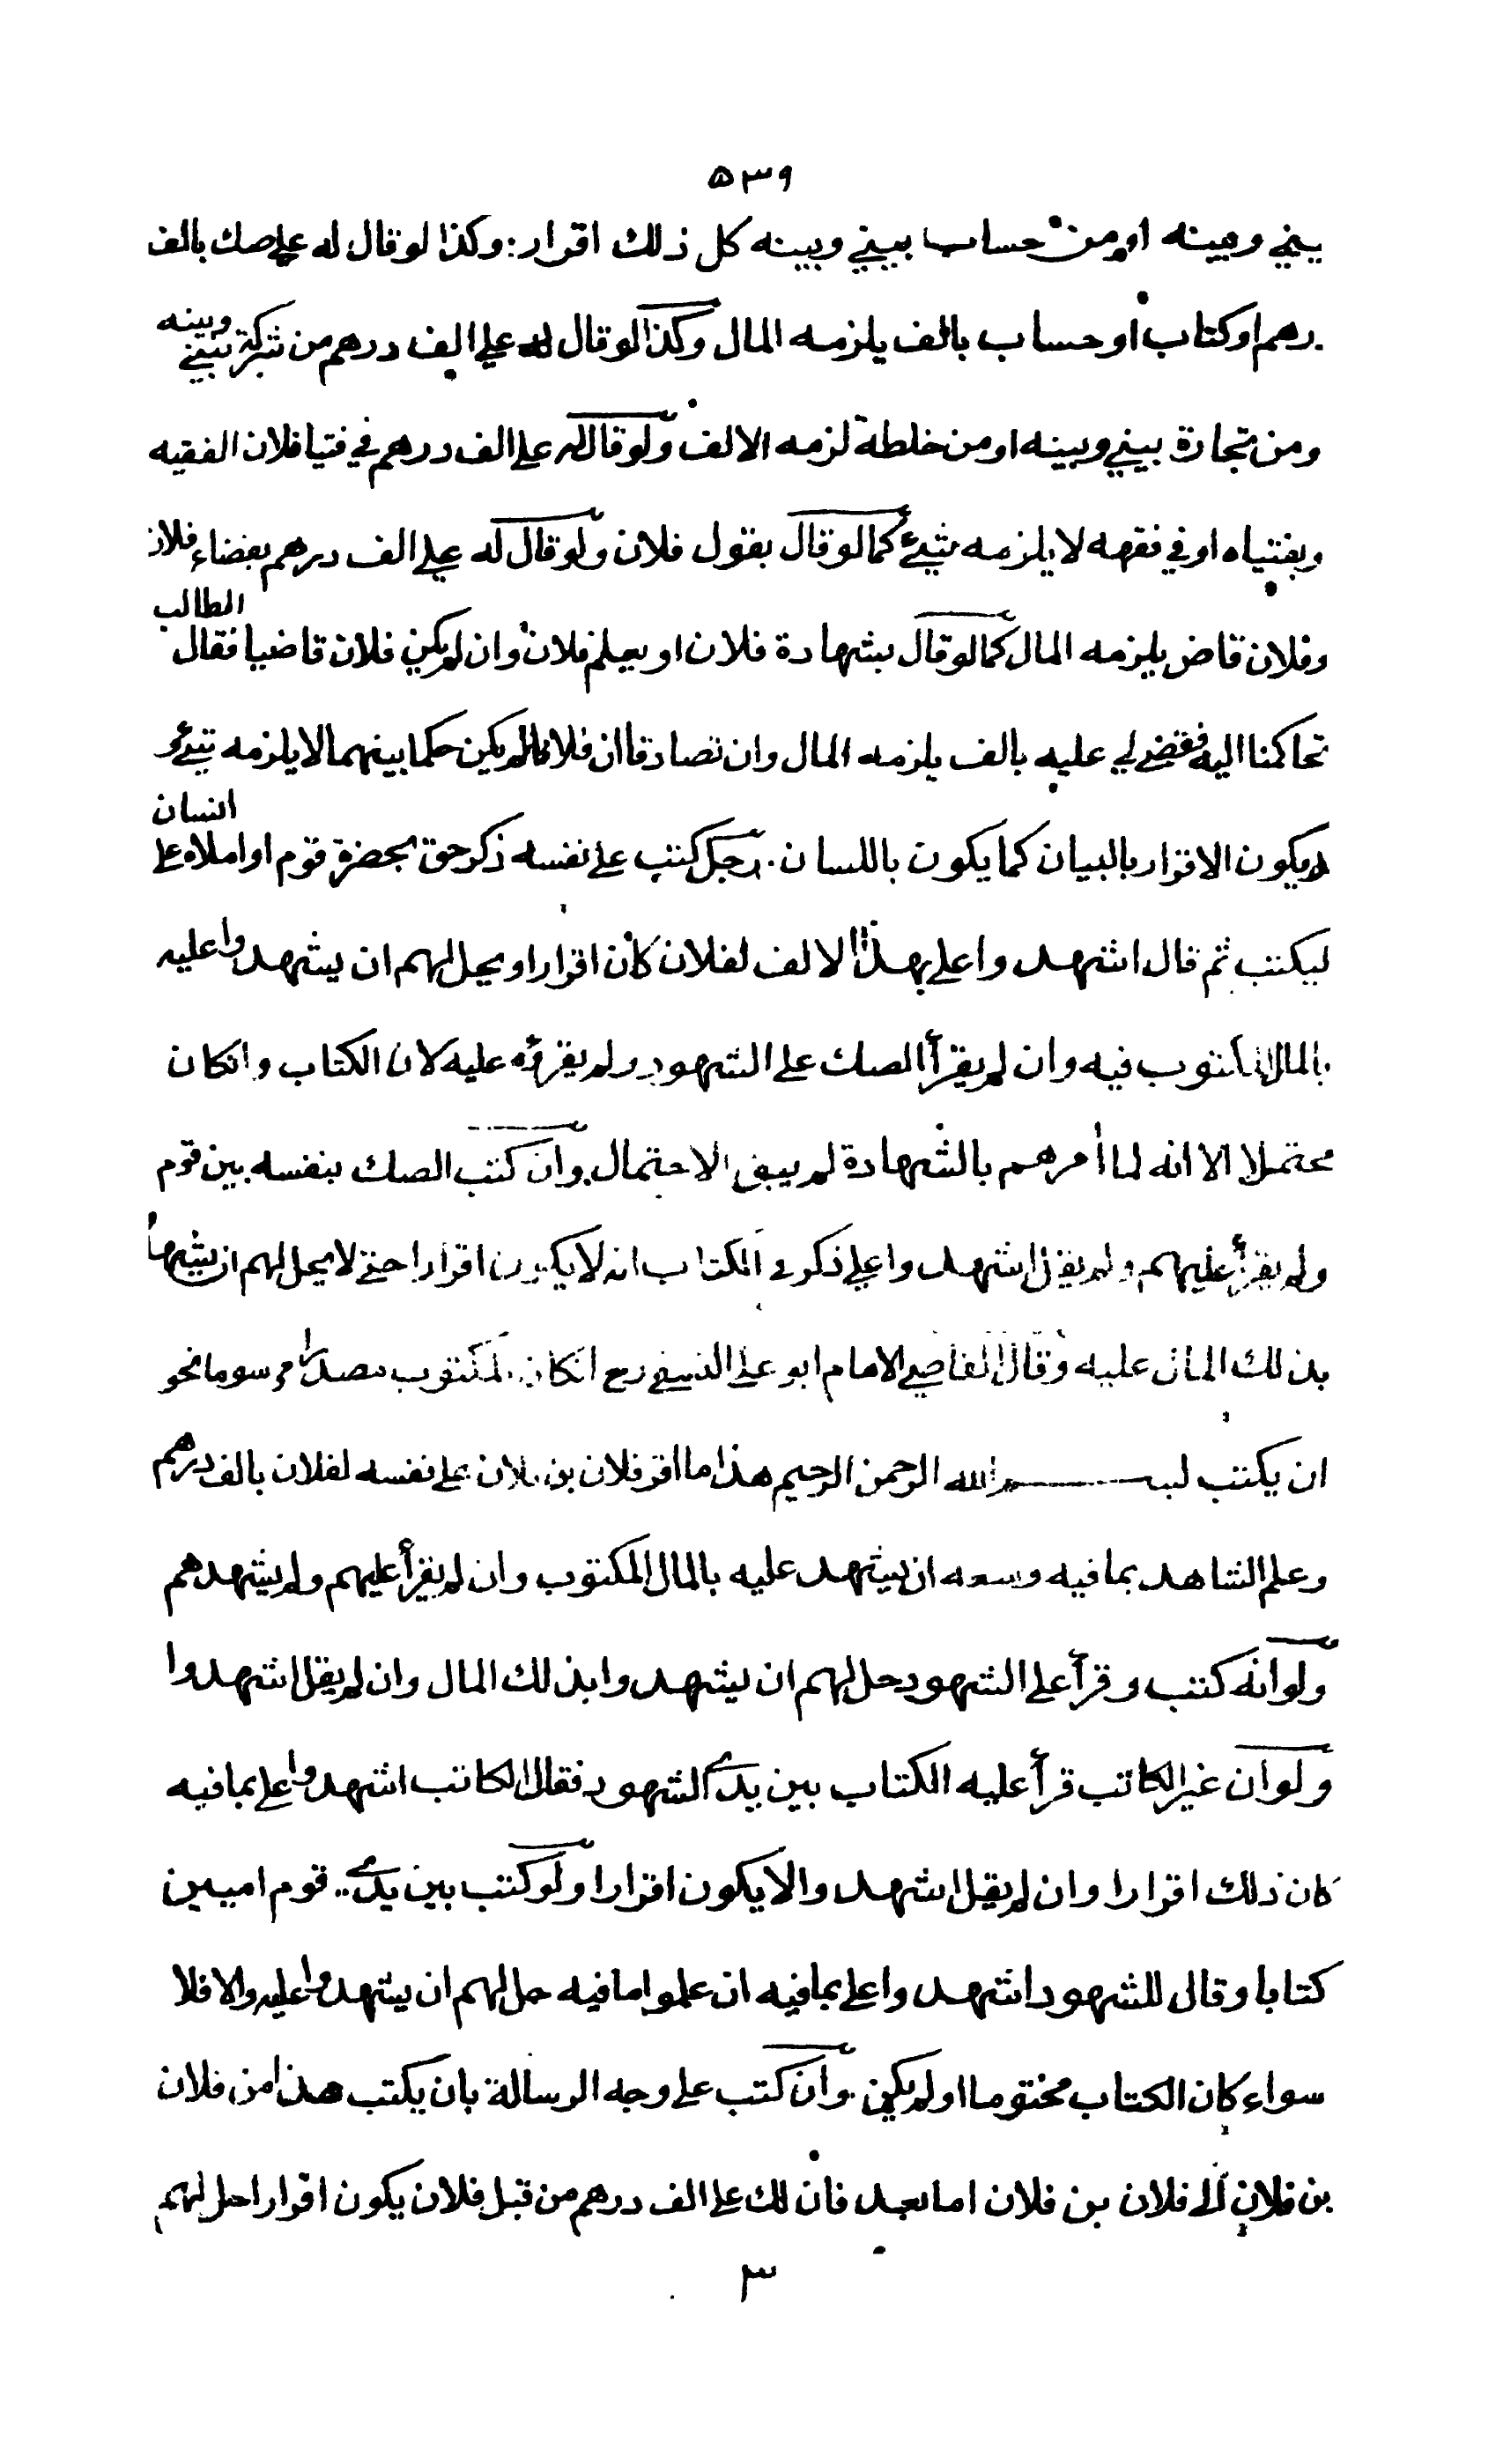 ٥٣٩
بيني وبينه او من حساب بيني وبينه كل ذلك اقرار: وكذا لو قال له علي صك بالف
درهم او كتاب او حساب بالف يلزمه المال وكذا لو قال له علي الف درهم من شركة بيني وبينه
ومن تجارة بيني وبينه او من خلطة لزمه الالف ولو قال له علي الف درهم في فتيا فلان الفقيه
وبفتياه او في فقهه لا يلزمه شيء كما لو قال بقول فلان ولو قال له علي الف درهم بقضاء فلان
وفلان قاض يلزمه المال كما لو قال بشهادة فلان او بعلم فلان وان لم يكن فلان قاضيا فقال الطالب
تحاكمنا اليه فقضى لي عليه بالف يلزمه المال وان تصادقا ان فلانا لم يكن حكما بينهما لا يلزمه شيء و
يكون الاقرار بالبيان كما يكون باللسان. رجل كتب على نفسه ذكر حق بحضرة قوم او املاه على انسان
ليكتب ثم قال اشهدوا علي بهذا الالف لفلان كان اقرارا ويحل لهم ان يشهدوا عليه
بالمال المكتوب فيه وان لم يقرأ الصك على الشهود ولم يقرؤه عليه لان الكتاب وانكان
محتملا الا انه لما أمرهم بالشهادة لم يبق الاحتمال وان كتب الصك بنفسه بين قوم
ولم يقرأ عليهم ولم يقل اشهدوا علي ذكر في الكتاب انه لا يكون اقرارا حتى لا يحل لهم ان يشهدوا
بذلك المال عليه وقال القاضي الامام ابو علي النسفي رح انكان المكتوب مصدرا مرسوما نحو
ان يكتب بسم الله الرحمن الرحيم هذا ما اقر فلان بن فلان على نفسه لفلان بالف درهم
وعلم الشاهد بما فيه وسعه ان يشهد عليه بالمال المكتوب وان لم يقرأ عليهم ولم يشهدهم
ولو انه كتب وقرأ على الشهود حل لهم ان يشهدوا بذلك المال وان لم يقل اشهدوا
ولو ان غير الكاتب قرأ عليه الكتاب بين يدي الشهود فقال الكاتب اشهدوا علي بما فيه
كان ذلك اقرارا وان لم يقل اشهدوا لا يكون اقرارا ولو كتب بين يدي قوم اميين
كتابا وقال للشهود اشهدوا علي بما فيه ان علموا ما فيه حل لهم ان يشهدوا عليه والا فلا
سواء كان الكتاب مختوما او لم يكن. وان كتب على وجه الرسالة بان يكتب هذا من فلان
بن فلان الى فلان بن فلان اما بعد فان لك علي الف درهم من قبل فلان يكون اقرارا حل لهم
٣